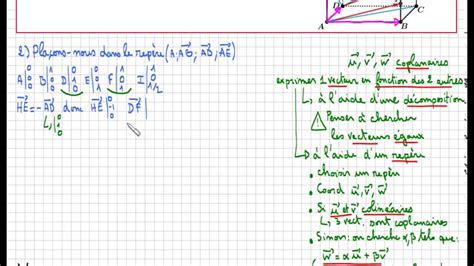 D
C
A
B
2) Plaçons-nous dans le repère (A, AB, AD, AE)
A|0 0 0 B|1 0 0 D|0 1 0 E|0 0 1 F|1 0 1 I|
HE = -AD donc HE|0 -1 0 DF|
L, |0 1 0
u, v, w coplanaires
exprimer 1 vecteur en fonction des 2 autres
↳ à l'aide d'une décomposition
! Penser à chercher
les vecteurs égaux
↳ à l'aide d'un repère
• choisir un repère
• Coord u, v, w
• Si u et v colinéaires
↳ 3 vect. sont coplanaires
• Sinon: on cherche α, β tels que:
w = αu + βv